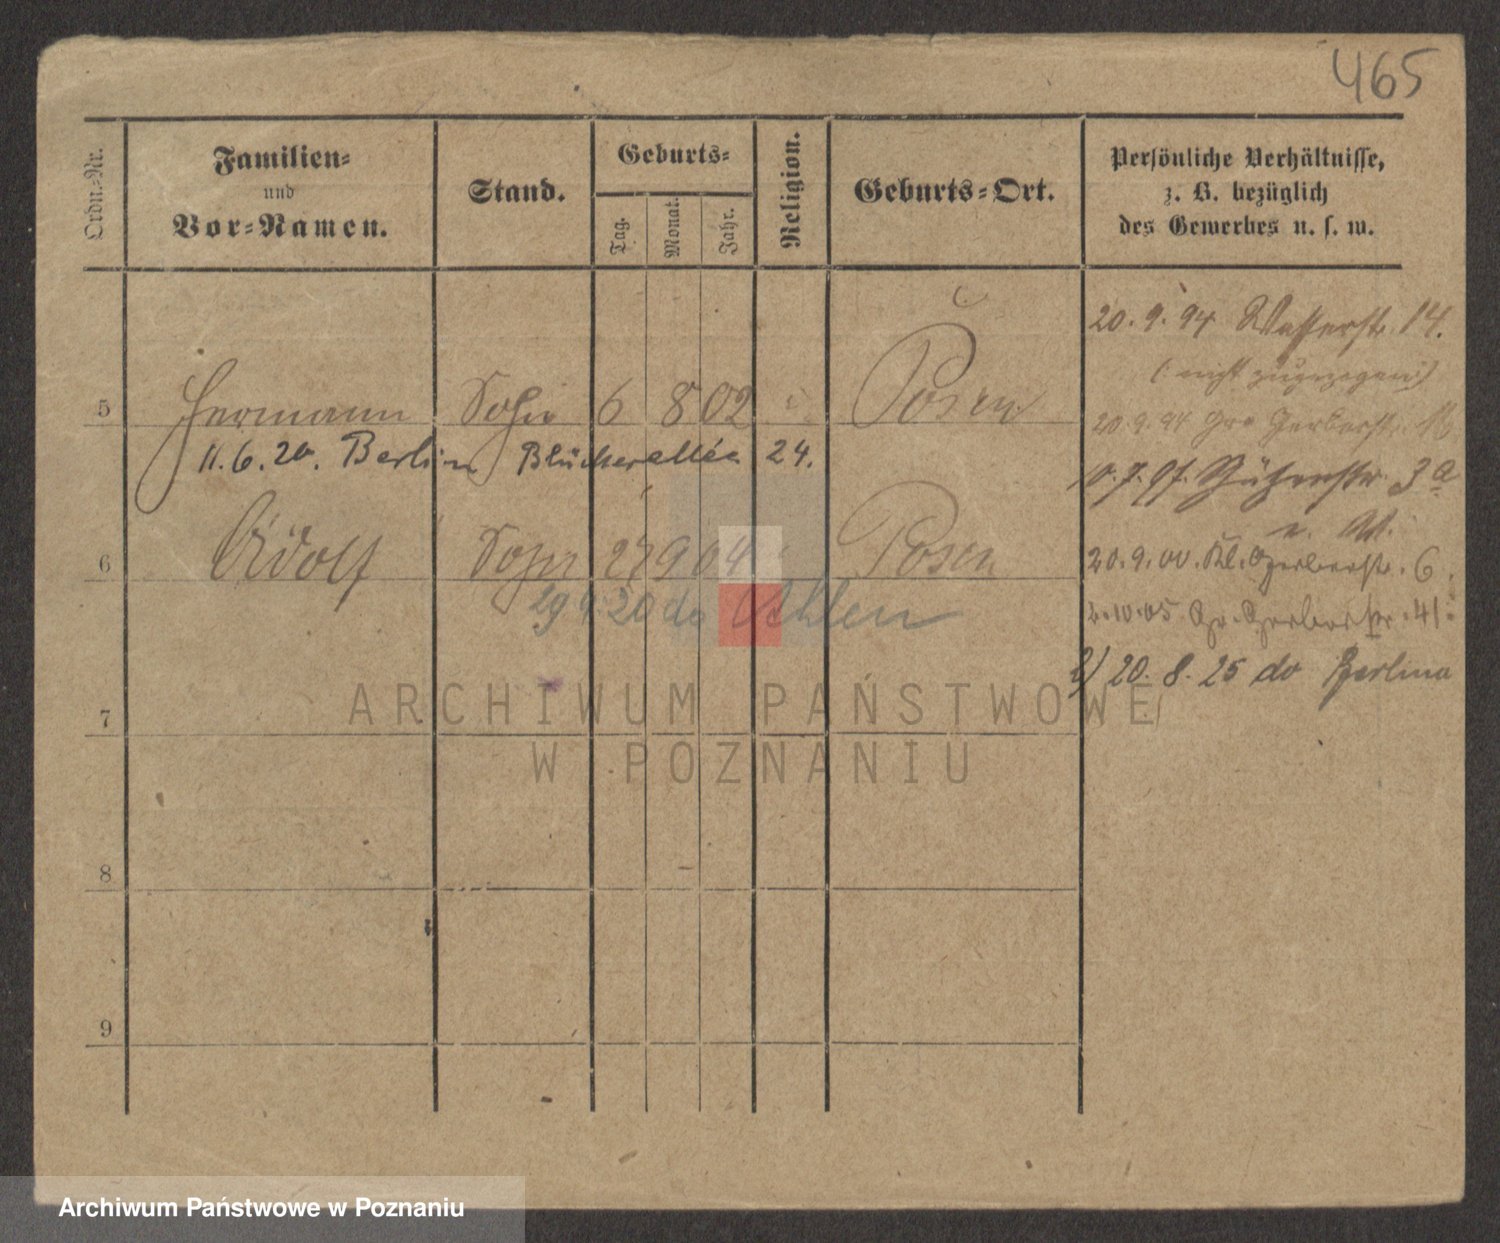 465
Ordn.-Nr.
Familien-
und
Vor-Namen.
Stand.
Geburts-
Tag.
Monat.
Jahr.
Religion.
Geburts-Ort.
Persönliche Verhältnisse,
z. B. bezüglich
des Gewerbes u. s. w.
20. 9. 94 Wasserstr. 14.
(nicht zugezogen)
5 Hermann Sohn 6 8 02 Posen
20.9.94 Gerberstr.
11.6.20. Berlin Blücherallée 24.
Schützenstr. 3a
6 Adolf Sohn 27 9 04 Posen
20.9.00. Kl. Gerberstr. 6
20 do Ahlen
2.10.05 Gr. Gerberstr. 41.
20. 8. 25 do Berlina
7
8
9
ARCHIWUM PAŃSTWOWE
W POZNANIU
Archiwum Państwowe w Poznaniu